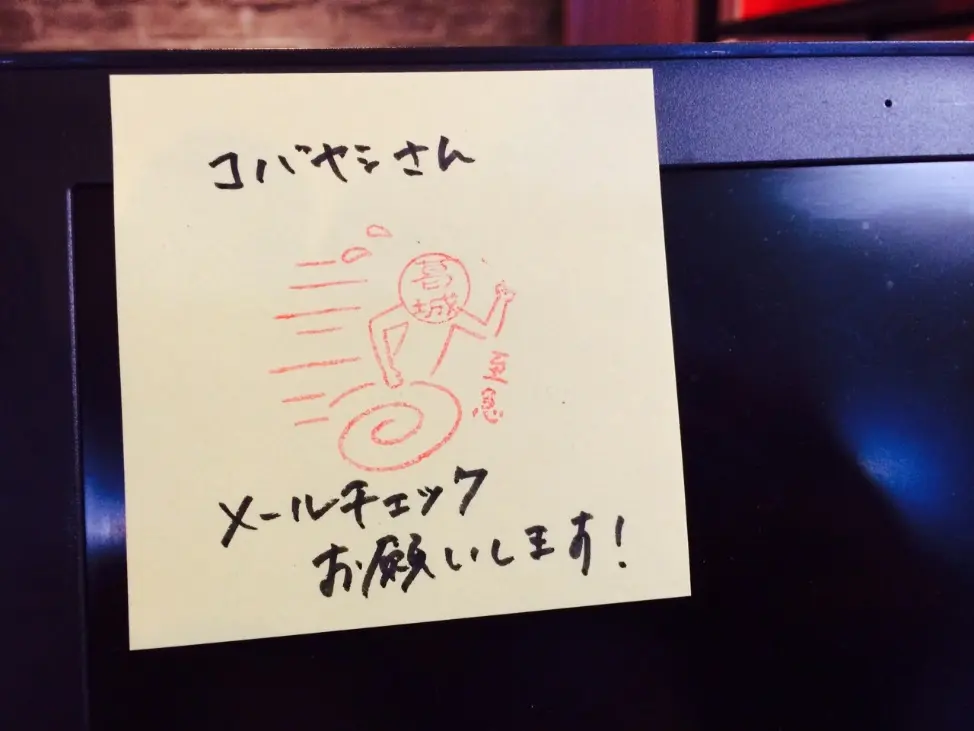 コバヤシさん
高城
至急
メールチェック
お願いします!